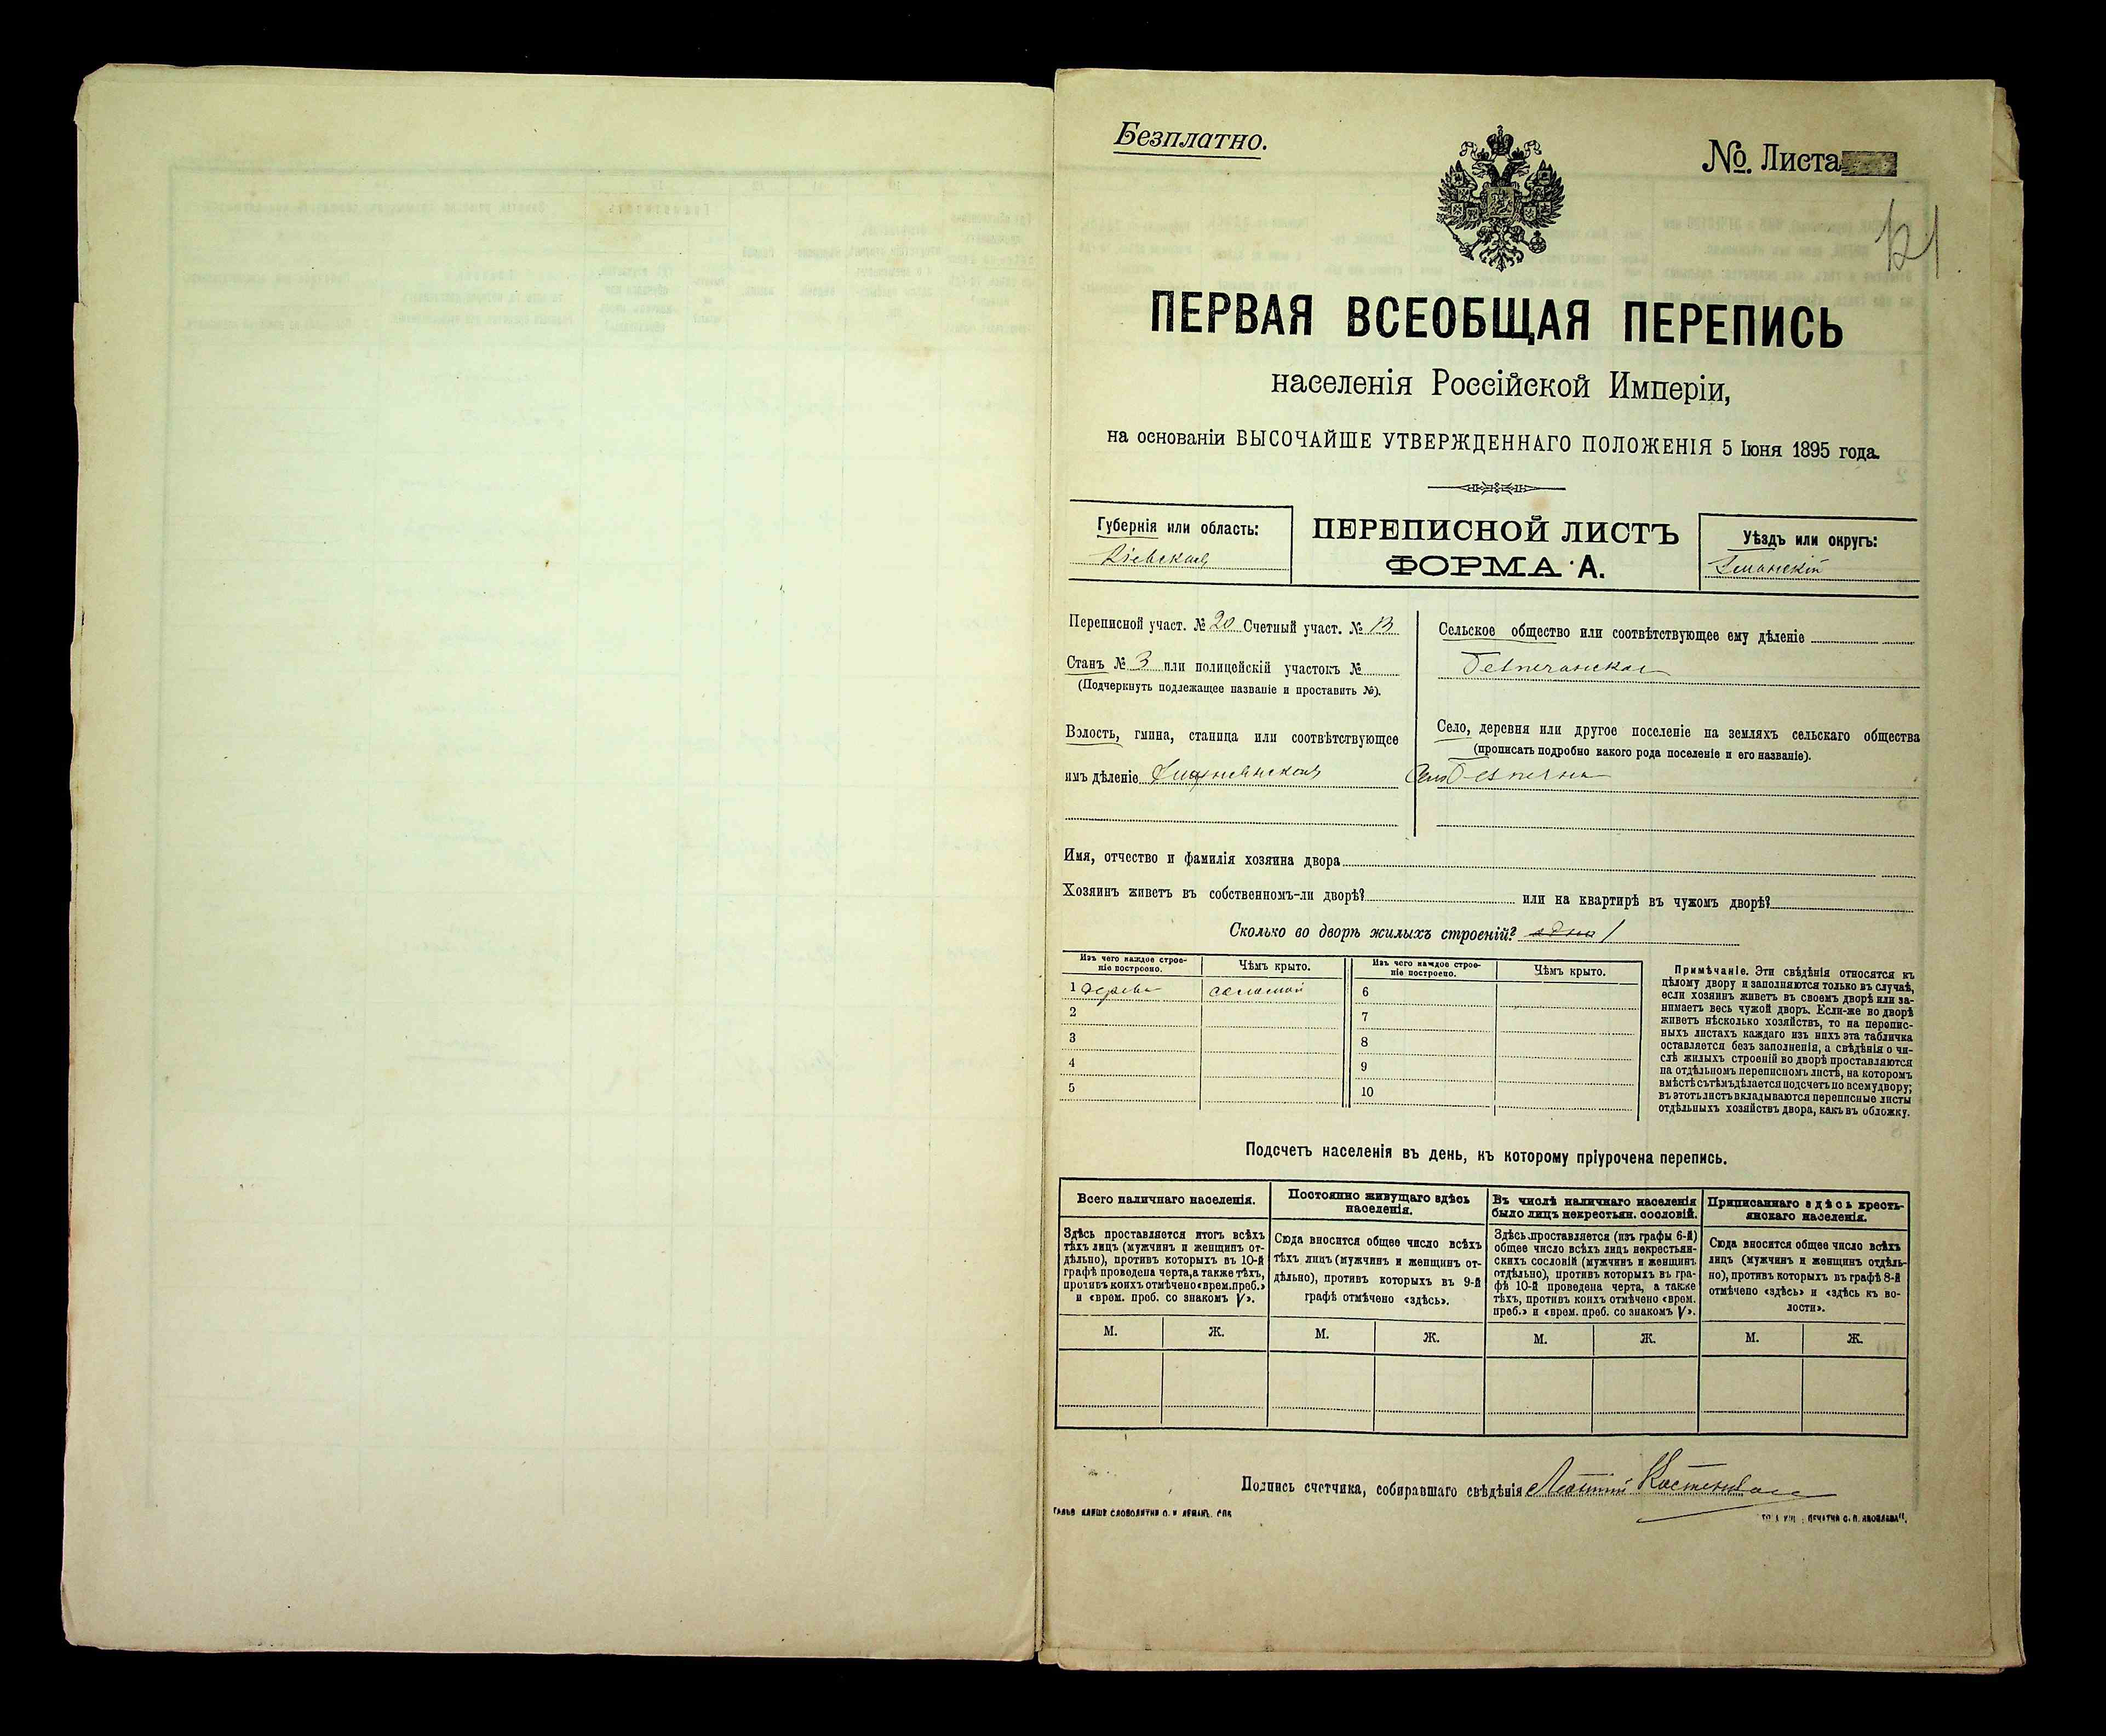 Безплатно.
№. Листа
121
ПЕРВАЯ ВСЕОБЩАЯ ПЕРЕПИСЬ
населенія Россійской Имперіи,
на основаніи ВЫСОЧАЙШЕ УТВЕРЖДЕННАГО ПОЛОЖЕНІЯ 5 Іюня 1895 года.
Губернія или область:
Кіевская
ПЕРЕПИСНОЙ ЛИСТЪ
ФОРМА А.
Уѣздъ или округъ:
Уманскій
Переписной участ. № 20 Счетный участ. № 13
Станъ № 3 или полицейскій участокъ №
(Подчеркнуть подлежащее названіе и проставить №).
Волость, гмина, станица или соотвѣтствующее
имъ дѣленіе
Сельское общество или соотвѣтствующее ему дѣленіе
Безпечанское
Село, деревня или другое поселеніе на земляхъ сельскаго общества
(прописать подробно какого рода поселеніе и его названіе).
Село Безпечна
Имя, отчество и фамилія хозяина двора
Хозяинъ живетъ въ собственномъ-ли дворѣ? или на квартирѣ въ чужомъ дворѣ?
Сколько во дворѣ жилыхъ строеній? одно 1
Изъ чего каждое строе-
ніе построено.
Чѣмъ крыто.
Изъ чего каждое строе-
ніе построено.
Чѣмъ крыто.
1 дерева соломой 6
2 7
3 8
4 9
5 10
Примѣчаніе. Эти свѣдѣнія относятся къ
цѣлому двору и заполняются только въ случаѣ,
если хозяинъ живетъ въ своемъ дворѣ или за-
нимаетъ весь чужой дворъ. Если-же во дворѣ
живетъ нѣсколько хозяйствъ, то на перепис-
ныхъ листахъ каждаго изъ нихъ эта табличка
оставляется безъ заполненія, а свѣдѣнія о чи-
слѣ жилыхъ строеній во дворѣ проставляются
на отдѣльномъ переписномъ листѣ, на которомъ
вмѣстѣ съ тѣмъ дѣлается подсчетъ по всему двору;
въ этотъ листъ вкладываются переписные листы
отдѣльныхъ хозяйствъ двора, какъ въ обложку.
Подсчетъ населенія въ день, къ которому пріурочена перепись.
Всего наличнаго населенія.
Здѣсь проставляется итогъ всѣхъ
тѣхъ лицъ (мужчинъ и женщинъ от-
дѣльно), противъ которыхъ въ 10-й
графѣ проведена черта, а также тѣхъ,
противъ коихъ отмѣчено «врем. преб.»
и «врем. преб. со знакомъ V».
Постоянно живущаго здѣсь
населенія.
Сюда вносится общее число всѣхъ
тѣхъ лицъ (мужчинъ и женщинъ от-
дѣльно), противъ которыхъ въ 9-й
графѣ отмѣчено «здѣсь».
Въ числѣ наличнаго населенія
было лицъ некрестьян. сословій.
Здѣсь проставляется (изъ графы 6-й)
общее число всѣхъ лицъ некрестьян-
скихъ сословій (мужчинъ и женщинъ
отдѣльно), противъ которыхъ въ гра-
фѣ 10-й проведена черта, а также
тѣхъ, противъ коихъ отмѣчено «врем.
преб.» и «врем. преб. со знакомъ V».
Приписаннаго здѣсь кресть-
янскаго населенія.
Сюда вносится общее число всѣхъ
лицъ (мужчинъ и женщинъ отдѣль-
но), противъ которыхъ въ графѣ 8-й
отмѣчено «здѣсь» и «здѣсь къ во-
лости».
М. Ж. М. Ж. М. Ж. М. Ж.
Подпись счетчика, собиравшаго свѣдѣнія